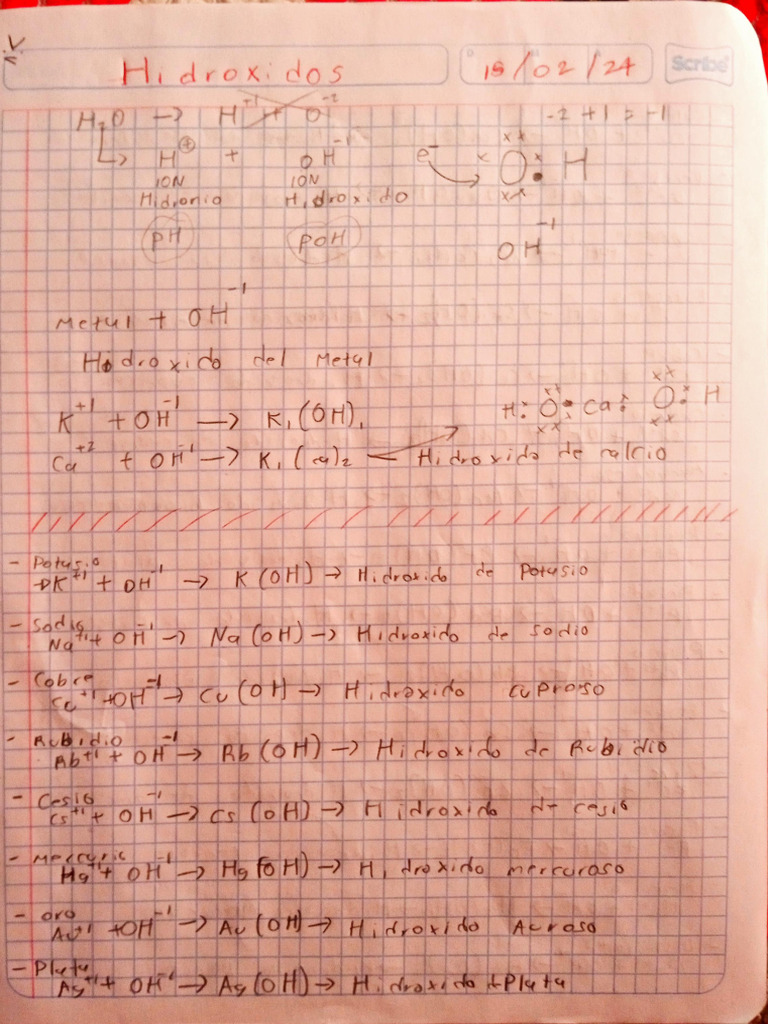 Hidroxidos 19/02/24 Scribe
H2O → H+1 + O-2 -2 +1 = -1
↳ H⊕ + OH-1 e- O H
ION ION
Hidronio Hidroxido
pH pOH OH-1
Metal + OH-1
Hidroxido del Metal
K+1 + OH-1 → K1(OH)1 H : O : Ca : O : H
Ca+2 + OH-1 → K1(ca)2 ← Hidroxido de calcio
- Potasio
K+1 + OH-1 → K(OH) → Hidroxido de Potasio
- Sodio
Na+1 + OH-1 → Na(OH) → Hidroxido de sodio
- Cobre
Cu+1 + OH-1 → Cu(OH) → Hidroxido cuproso
- Rubidio
Rb+1 + OH-1 → Rb(OH) → Hidroxido de Rubidio
- Cesio
Cs+1 + OH-1 → Cs(OH) → Hidroxido de cesio
- Mercurio
Hg+1 + OH-1 → Hg(OH) → Hidroxido mercuroso
- oro
Au+1 + OH-1 → Au(OH) → Hidroxido Auroso
- Plata
Ag+1 + OH-1 → Ag(OH) → Hidroxido d Plata